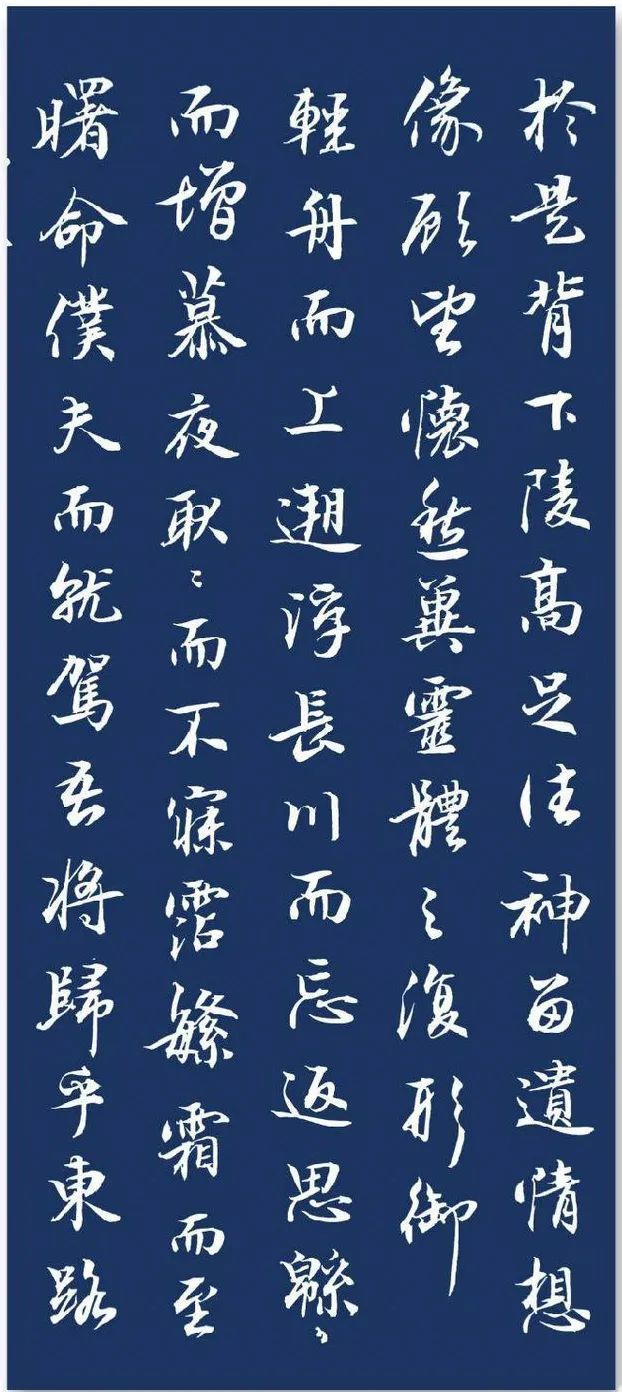 於是背下陵高足往神留遺情想
像顧望懷愁冀靈體之復形御
輕舟而上遡浮長川而忘返思緜々
而增慕夜耿々而不寐霑繁霜而至
曙命僕夫而就駕吾将歸乎東路